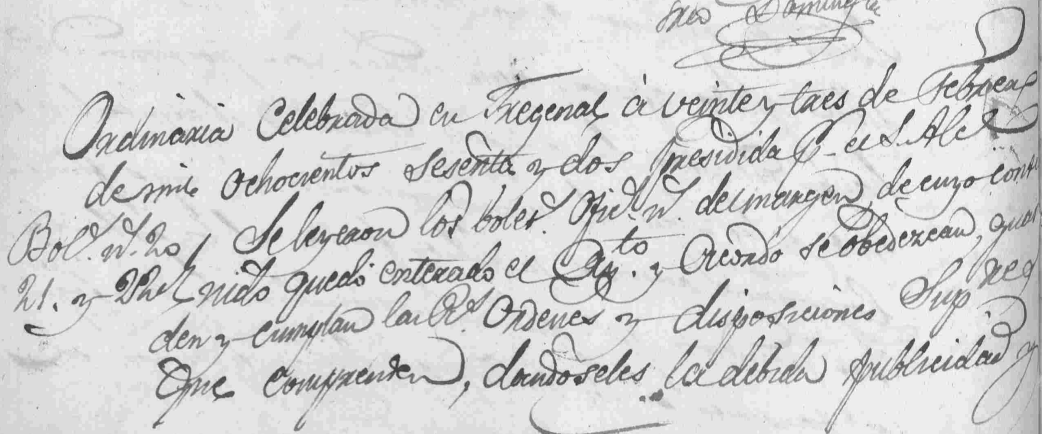 Domingo
Ordinaria Celebrada en Fregenal á veinte y tres de Febrero
de mil ochocientos sesenta y dos Presidida P. el S. Alcᵉ
Se leyeron los boles.ˢ Ofic.ˢ nˢ. del margen, de cuyo conte
Bol.ˢ nˢ. 20
21. y 22
nido quedó enterado el Ay.to y Acordó se obedezcan, guar
den y cumplan las Rˢ. Ordenes y disposiciones Sup.res
que comprenden, dandoseles la debida publicidad y